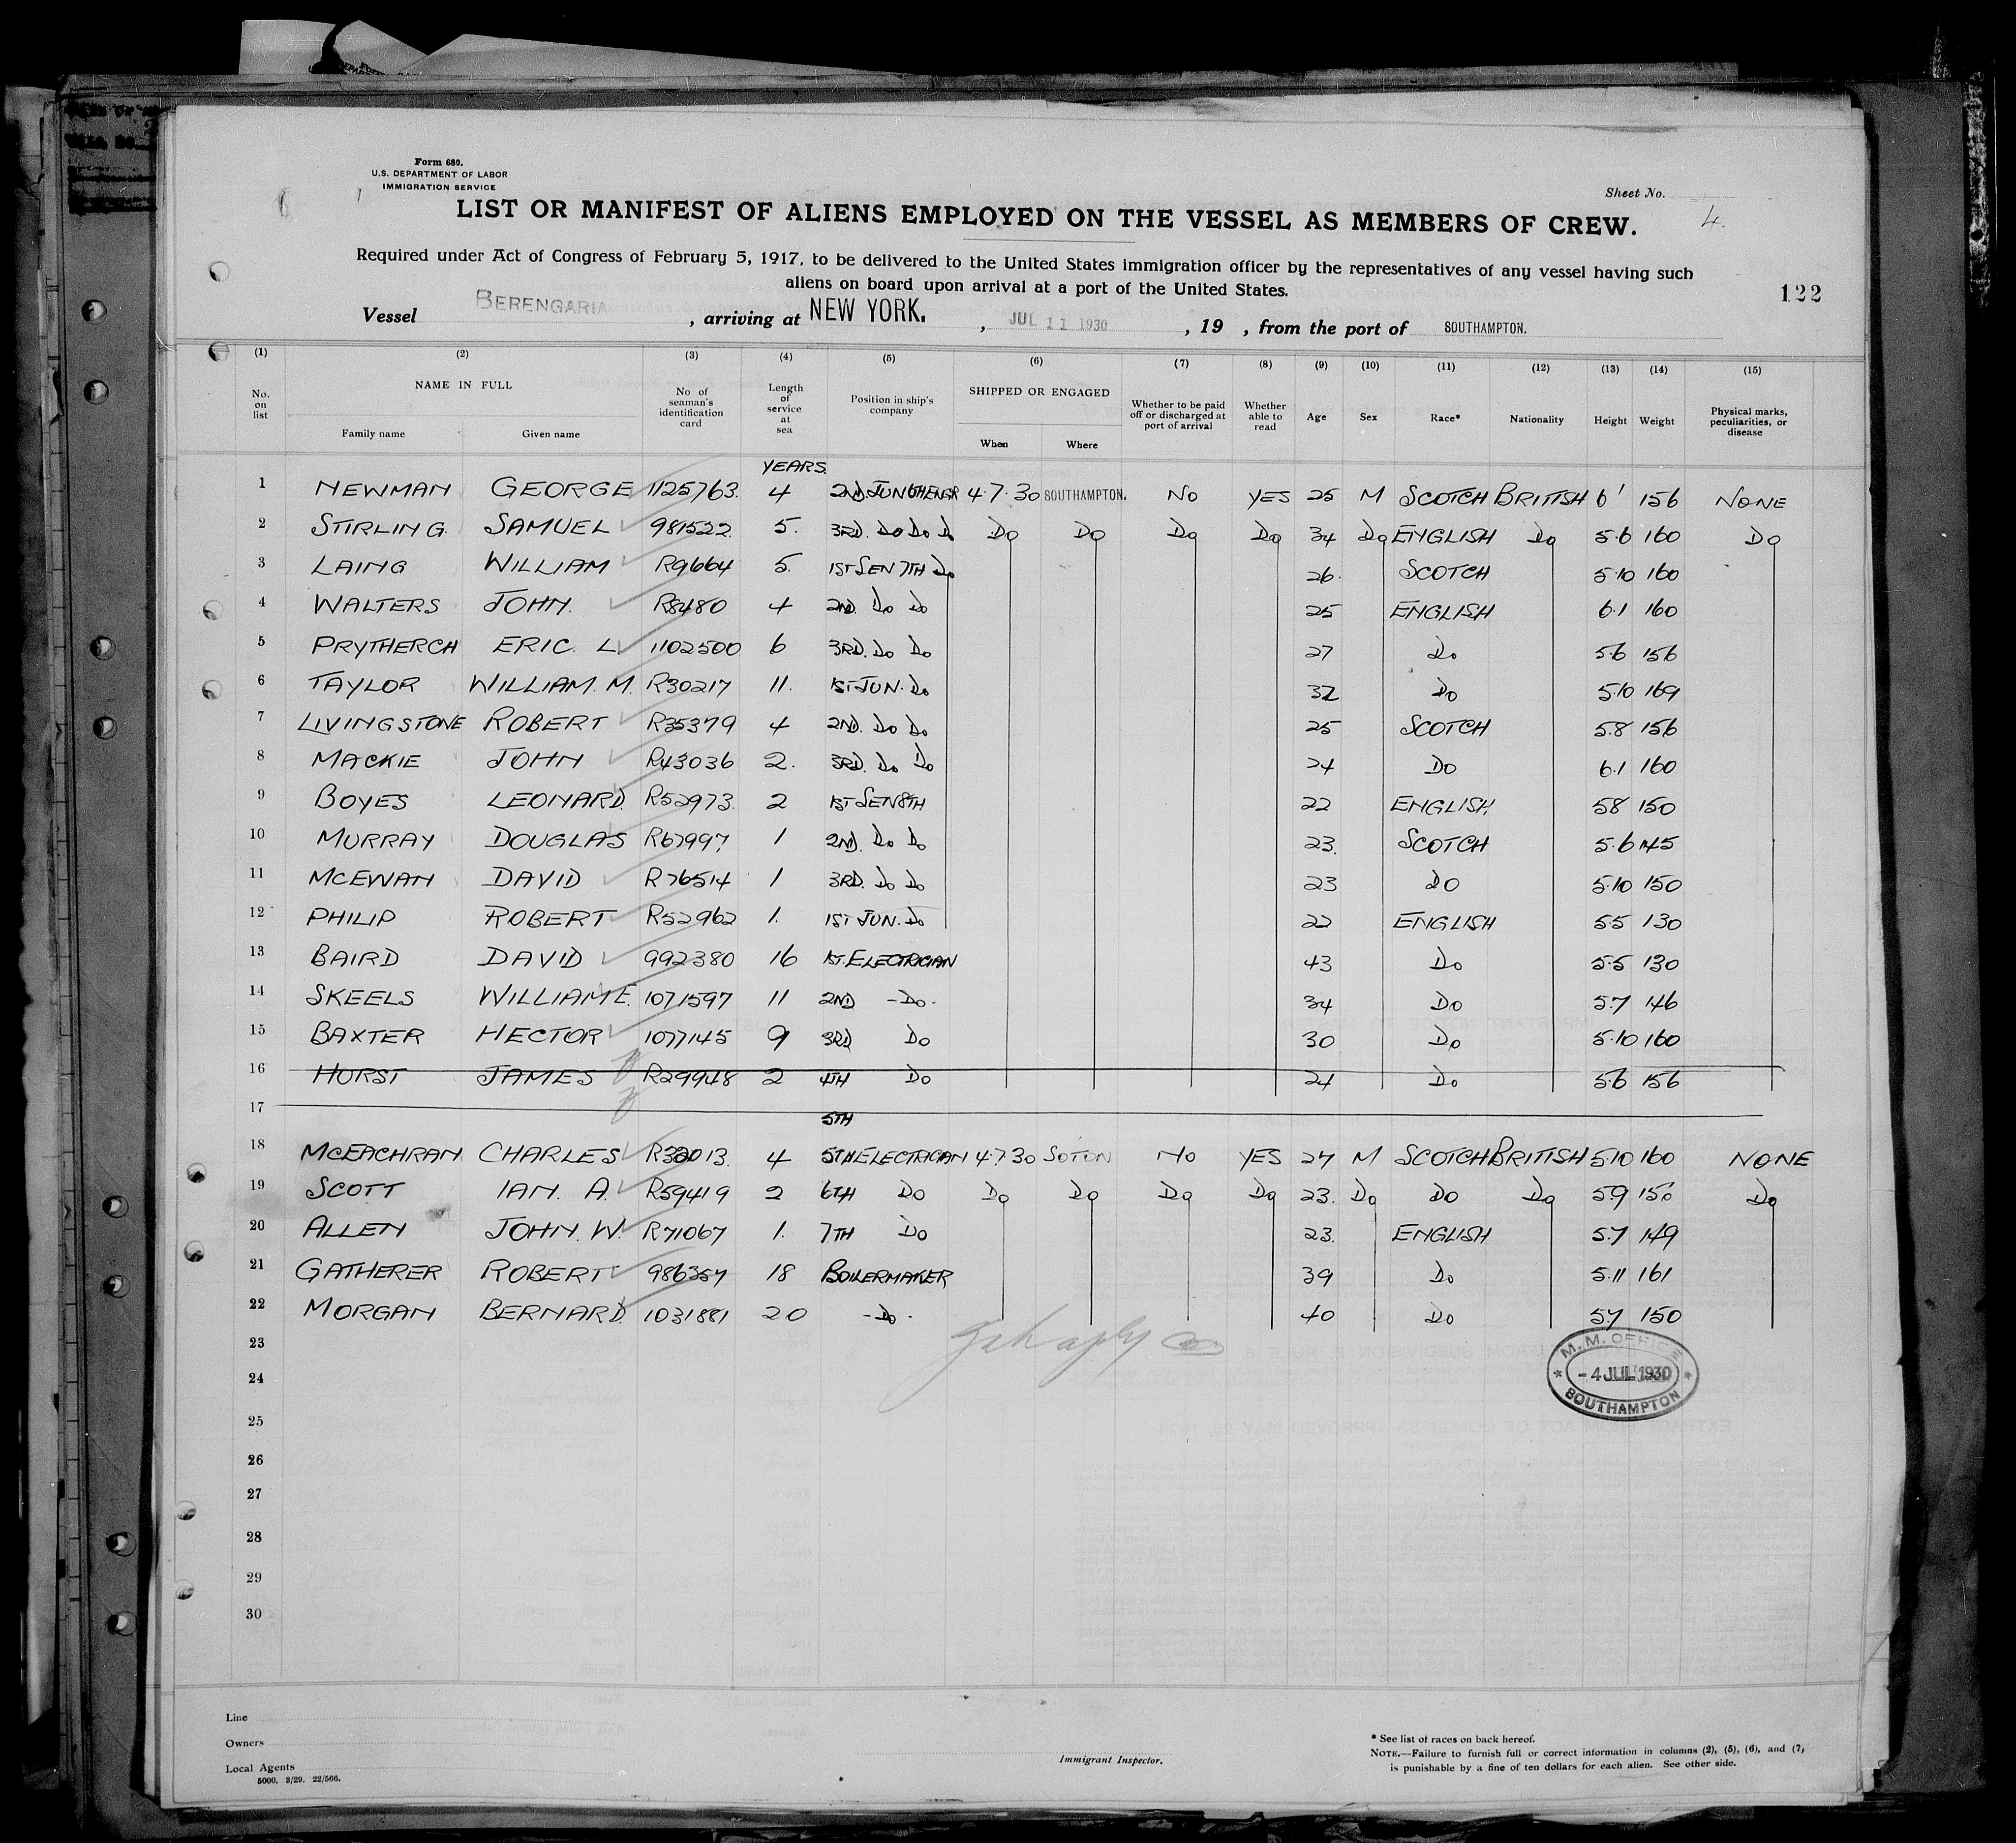 Form 680.
U.S. DEPARTMENT OF LABOR
IMMIGRATION SERVICE
Sheet No. 4.
LIST OR MANIFEST OF ALIENS EMPLOYED ON THE VESSEL AS MEMBERS OF CREW.
Required under Act of Congress of February 5, 1917, to be delivered to the United States immigration officer by the representatives of any vessel having such
aliens on board upon arrival at a port of the United States.
122
Vessel BERENGARIA, arriving at NEW YORK. , JUL 11 1930 , 19 , from the port of SOUTHAMPTON.
(1) (2) (3) (4) (5) (6) (7) (8) (9) (10) (11) (12) (13) (14) (15)
No. on list NAME IN FULL Family name Given name No of seaman's identification card Length of service at sea Position in ship's company SHIPPED OR ENGAGED When Where Whether to be paid off or discharged at port of arrival Whether able to read Age Sex Race* Nationality Height Weight Physical marks, peculiarities, or disease
YEARS.
1 NEWMAN GEORGE 1125763. 4 2ND JUN 6TH ENGR 4.7.30 SOUTHAMPTON. NO YES 25 M SCOTCH BRITISH 6' 156 NONE
2 STIRLING SAMUEL 981522. 5. 3RD. DO DO DO DO DO DO DO 34 DO ENGLISH DO 5.6 160 DO
3 LAING WILLIAM R9664 5. 1ST SEN 7TH DO 26. SCOTCH 5.10 160
4 WALTERS JOHN. R8480 4 2ND. DO DO 25 ENGLISH 6.1 160
5 PRYTHERCH ERIC L 1102500 6 3RD. DO DO 27 DO 5.6 156
6 TAYLOR WILLIAM. M. R30217 11. 1ST JUN. DO 32 DO 5.10 169
7 LIVINGSTONE ROBERT R35379 4 2ND. DO DO 25 SCOTCH 5.8 156
8 MACKIE JOHN R43036 2. 3RD. DO DO 24 DO 6.1 160
9 BOYES LEONARD. R52973. 2 1ST SEN 8TH 22 ENGLISH. 5.8 150
10 MURRAY DOUGLAS R67997. 1 2ND. DO DO 23. SCOTCH 5.6 145
11 MCEWAN DAVID R76514 1 3RD. DO DO 23 DO 5.10 150
12 PHILIP ROBERT R52962 1. 1ST JUN. DO 22 ENGLISH 5.5 130
13 BAIRD DAVID 992380 16 1ST. ELECTRICIAN 43 DO 5.5 130
14 SKEELS WILLIAM E. 1071597 11 2ND -DO- 34 DO 5.7 146
15 BAXTER HECTOR 1077145 9 3RD DO 30 DO 5.10 160
16 HURST JAMES R29948 2 4TH DO 24 DO 5.6 156
17 5TH
18 MCEACHRAN CHARLES R32013. 4 5TH ELECTRICIAN 4.7.30 SOTON NO YES 27 M SCOTCH BRITISH 5.10 160 NONE
19 SCOTT IAN. A. R59419 2 6TH DO DO DO DO DO 23. DO DO DO 5.9 150 DO
20 ALLEN JOHN. W. R71067 1. 7TH DO 23. ENGLISH 5.7 149
21 GATHERER ROBERT 986357 18 BOILERMAKER 39 DO 5.11 161
22 MORGAN BERNARD. 1031881 20 -DO- 40 DO 5.7 150
23
24
25
26
27
28
29
30
M.M. OFFICE
- 4 JUL 1930
SOUTHAMPTON
Line
Owners
Local Agents
5000. 3/29. 22/566.
Immigrant Inspector.
* See list of races on back hereof.
NOTE.—Failure to furnish full or correct information in columns (2), (5), (6), and (7),
is punishable by a fine of ten dollars for each alien. See other side.